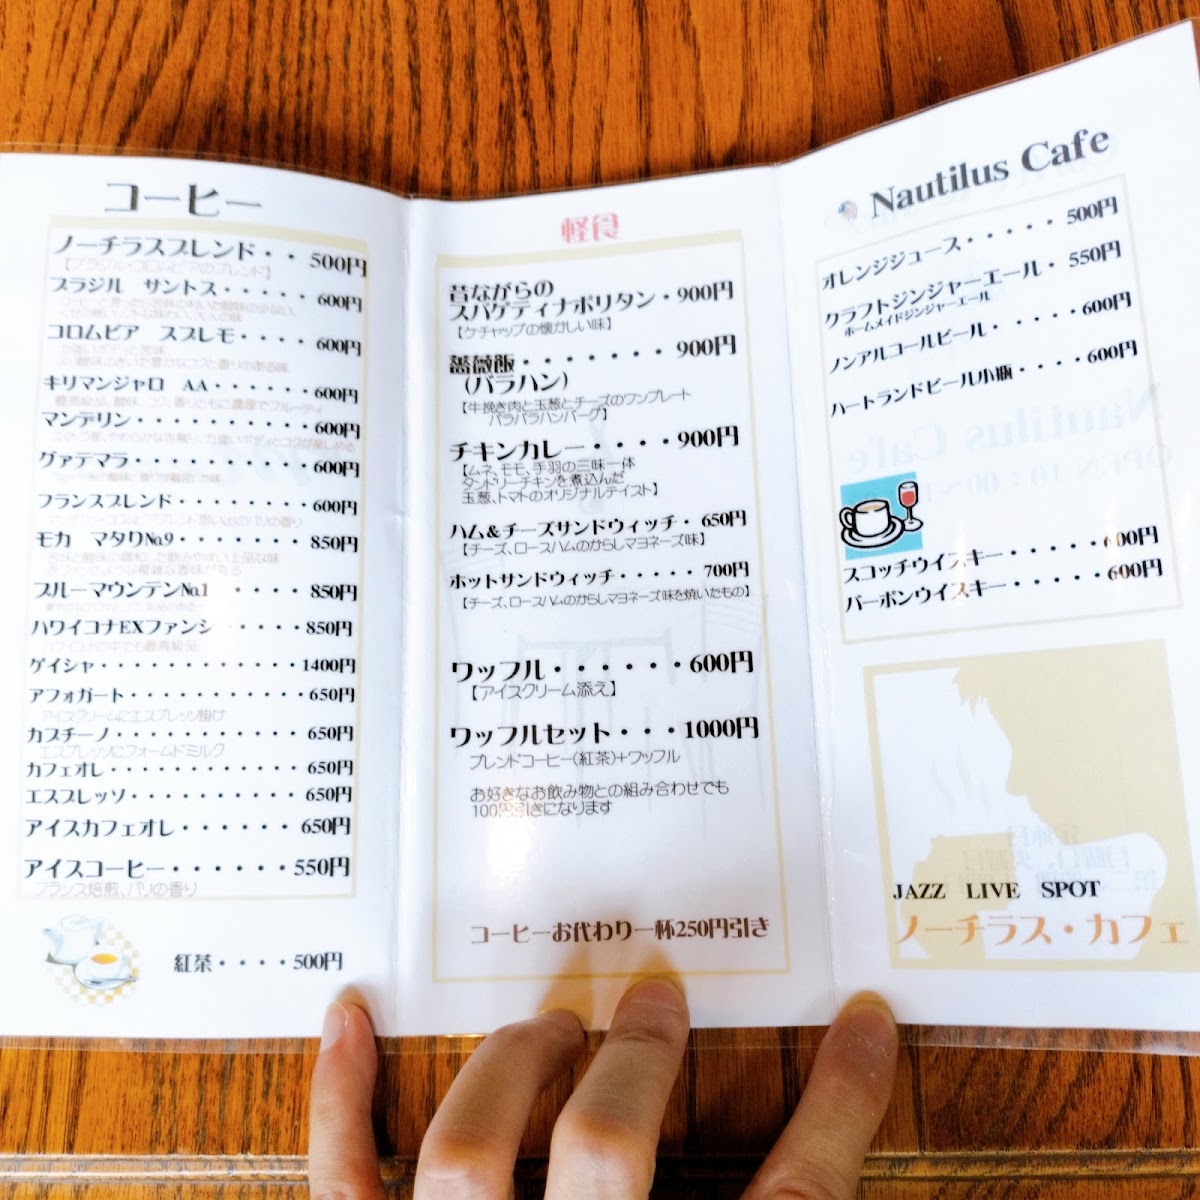 コーヒー
ノーチラスブレンド・・500円
【ブラジル・コロムビアのブレンド】
ブラジル サントス・・・・・600円
コロムビア スプレモ・・・・600円
キリマンジャロ AA・・・・・・600円
最高級品、酸味、コク、香りともに濃厚でフルーティ
マンデリン・・・・・・・・・・600円
グァテマラ・・・・・・・・・・600円
フランスブレンド・・・・・・・600円
モカ マタリ№9・・・・・・・850円
ブルーマウンテン№1 ・・・・850円
ハワイコナEXファンシー・・・・850円
ハワイコナの中でも最高級品
ゲイシャ・・・・・・・・・・・・1400円
アフォガート・・・・・・・・・・・650円
アイスクリームにエスプレッソ掛け
カプチーノ・・・・・・・・・・・650円
エスプレッソにフォームドミルク
カフェオレ・・・・・・・・・・・・650円
エスプレッソ・・・・・・・・・・650円
アイスカフェオレ・・・・・・650円
アイスコーヒー・・・・・・550円
フランス焙煎、パリの香り
紅茶・・・・500円
軽食
昔ながらの
スパゲティナポリタン・900円
【ケチャップの懐かしい味】
薔薇飯・・・・・・・900円
(バラハン)
【牛挽き肉と玉葱とチーズのワンプレート
バラバラハンバーグ】
チキンカレー・・・・・900円
【ムネ、モモ、手羽の三味一体
タンドリーチキンを煮込んだ
玉葱、トマトのオリジナルテイスト】
ハム&チーズサンドウィッチ・650円
【チーズ、ロースハムのからしマヨネーズ味】
ホットサンドウィッチ・・・・・700円
【チーズ、ロースハムのからしマヨネーズ味を焼いたもの】
ワッフル・・・・・・600円
【アイスクリーム添え】
ワッフルセット・・・1000円
ブレンドコーヒー(紅茶)+ワッフル
お好きなお飲み物との組み合わせでも
100円引きになります
コーヒーお代わり一杯250円引き
Nautilus Cafe
オレンジジュース・・・・・500円
クラフトジンジャーエール・550円
ホームメイドジンジャーエール
ノンアルコールビール・・・・・600円
ハートランドビール小瓶・・・・600円
スコッチウイスキー・・・・・600円
バーボンウイスキー・・・・・600円
JAZZ LIVE SPOT
ノーチラス・カフェ